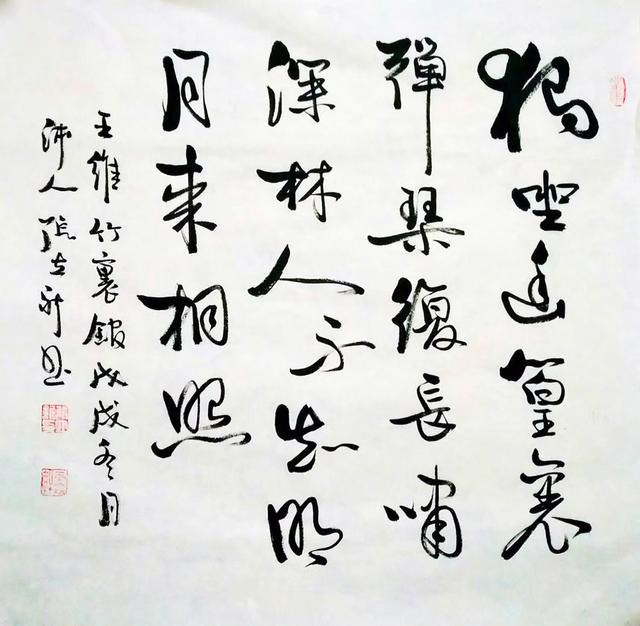 獨坐幽篁裏
彈琴復長嘯
深林人不知明
月来相照
王維竹裏館戊戌冬月
沛人